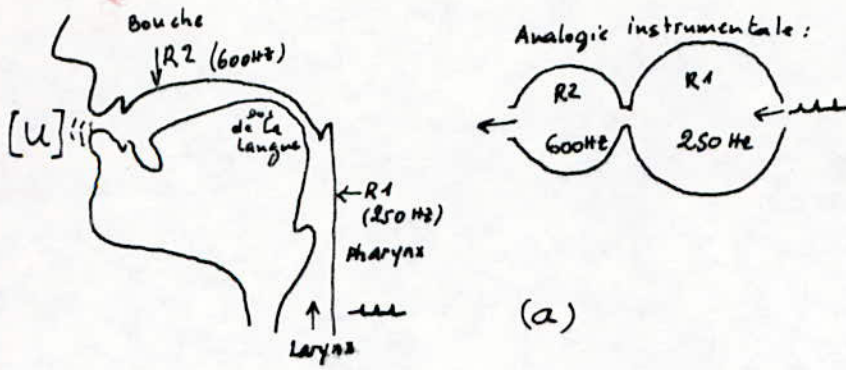 Bouche
R2 (600Hz)
[u]
dos
de la
langue
R1
(250 Hz)
pharynx
Larynx
Analogie instrumentale :
R2
600Hz
R1
250 Hz
(a)